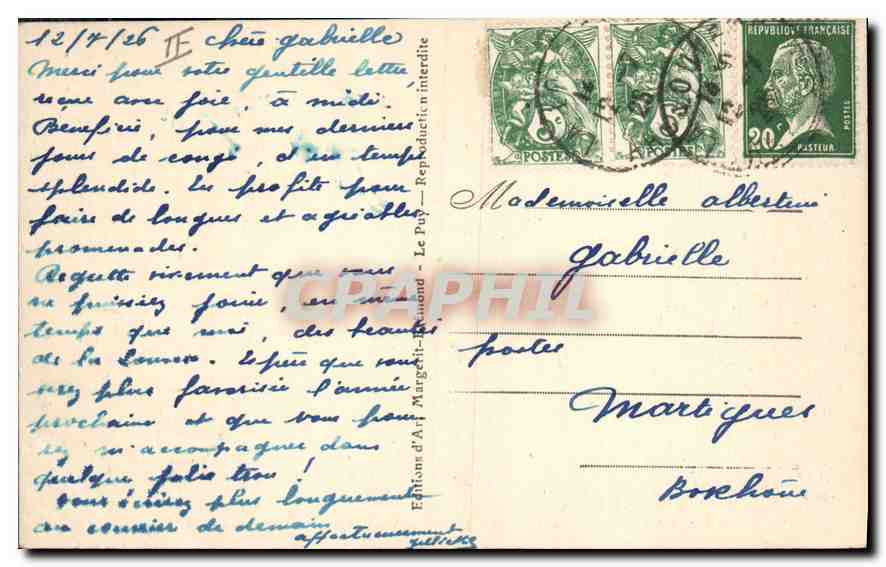 12/7/26 II Chère gabrielle
Merci pour votre gentille lettre
reçue avec joie, à midi.
Beneficié, pour mes derniers
jours de congé, d'un temps
splendide. En profite pour
faire de longues et agréables
promenades.
Regrette vivement que vous
ne puissiez jouir, en même
temps que moi, des beautés
de la
Espère que vous
serez plus favorisée l'année
prochaine et que vous pour
rez m'accompagner dans
quelque jolis trou!
vous écrirez plus longuement
au courrier de demain
affectueusement
Editions d'Art Margerit-Brémond - Le Puy — Reproduction interdite
5c
POSTES
POSTES
REPUBLIQUE FRANÇAISE
POSTES
20c
PASTEUR
Mademoiselle albertini
gabrielle
postes
Martigues
CPAPHIL